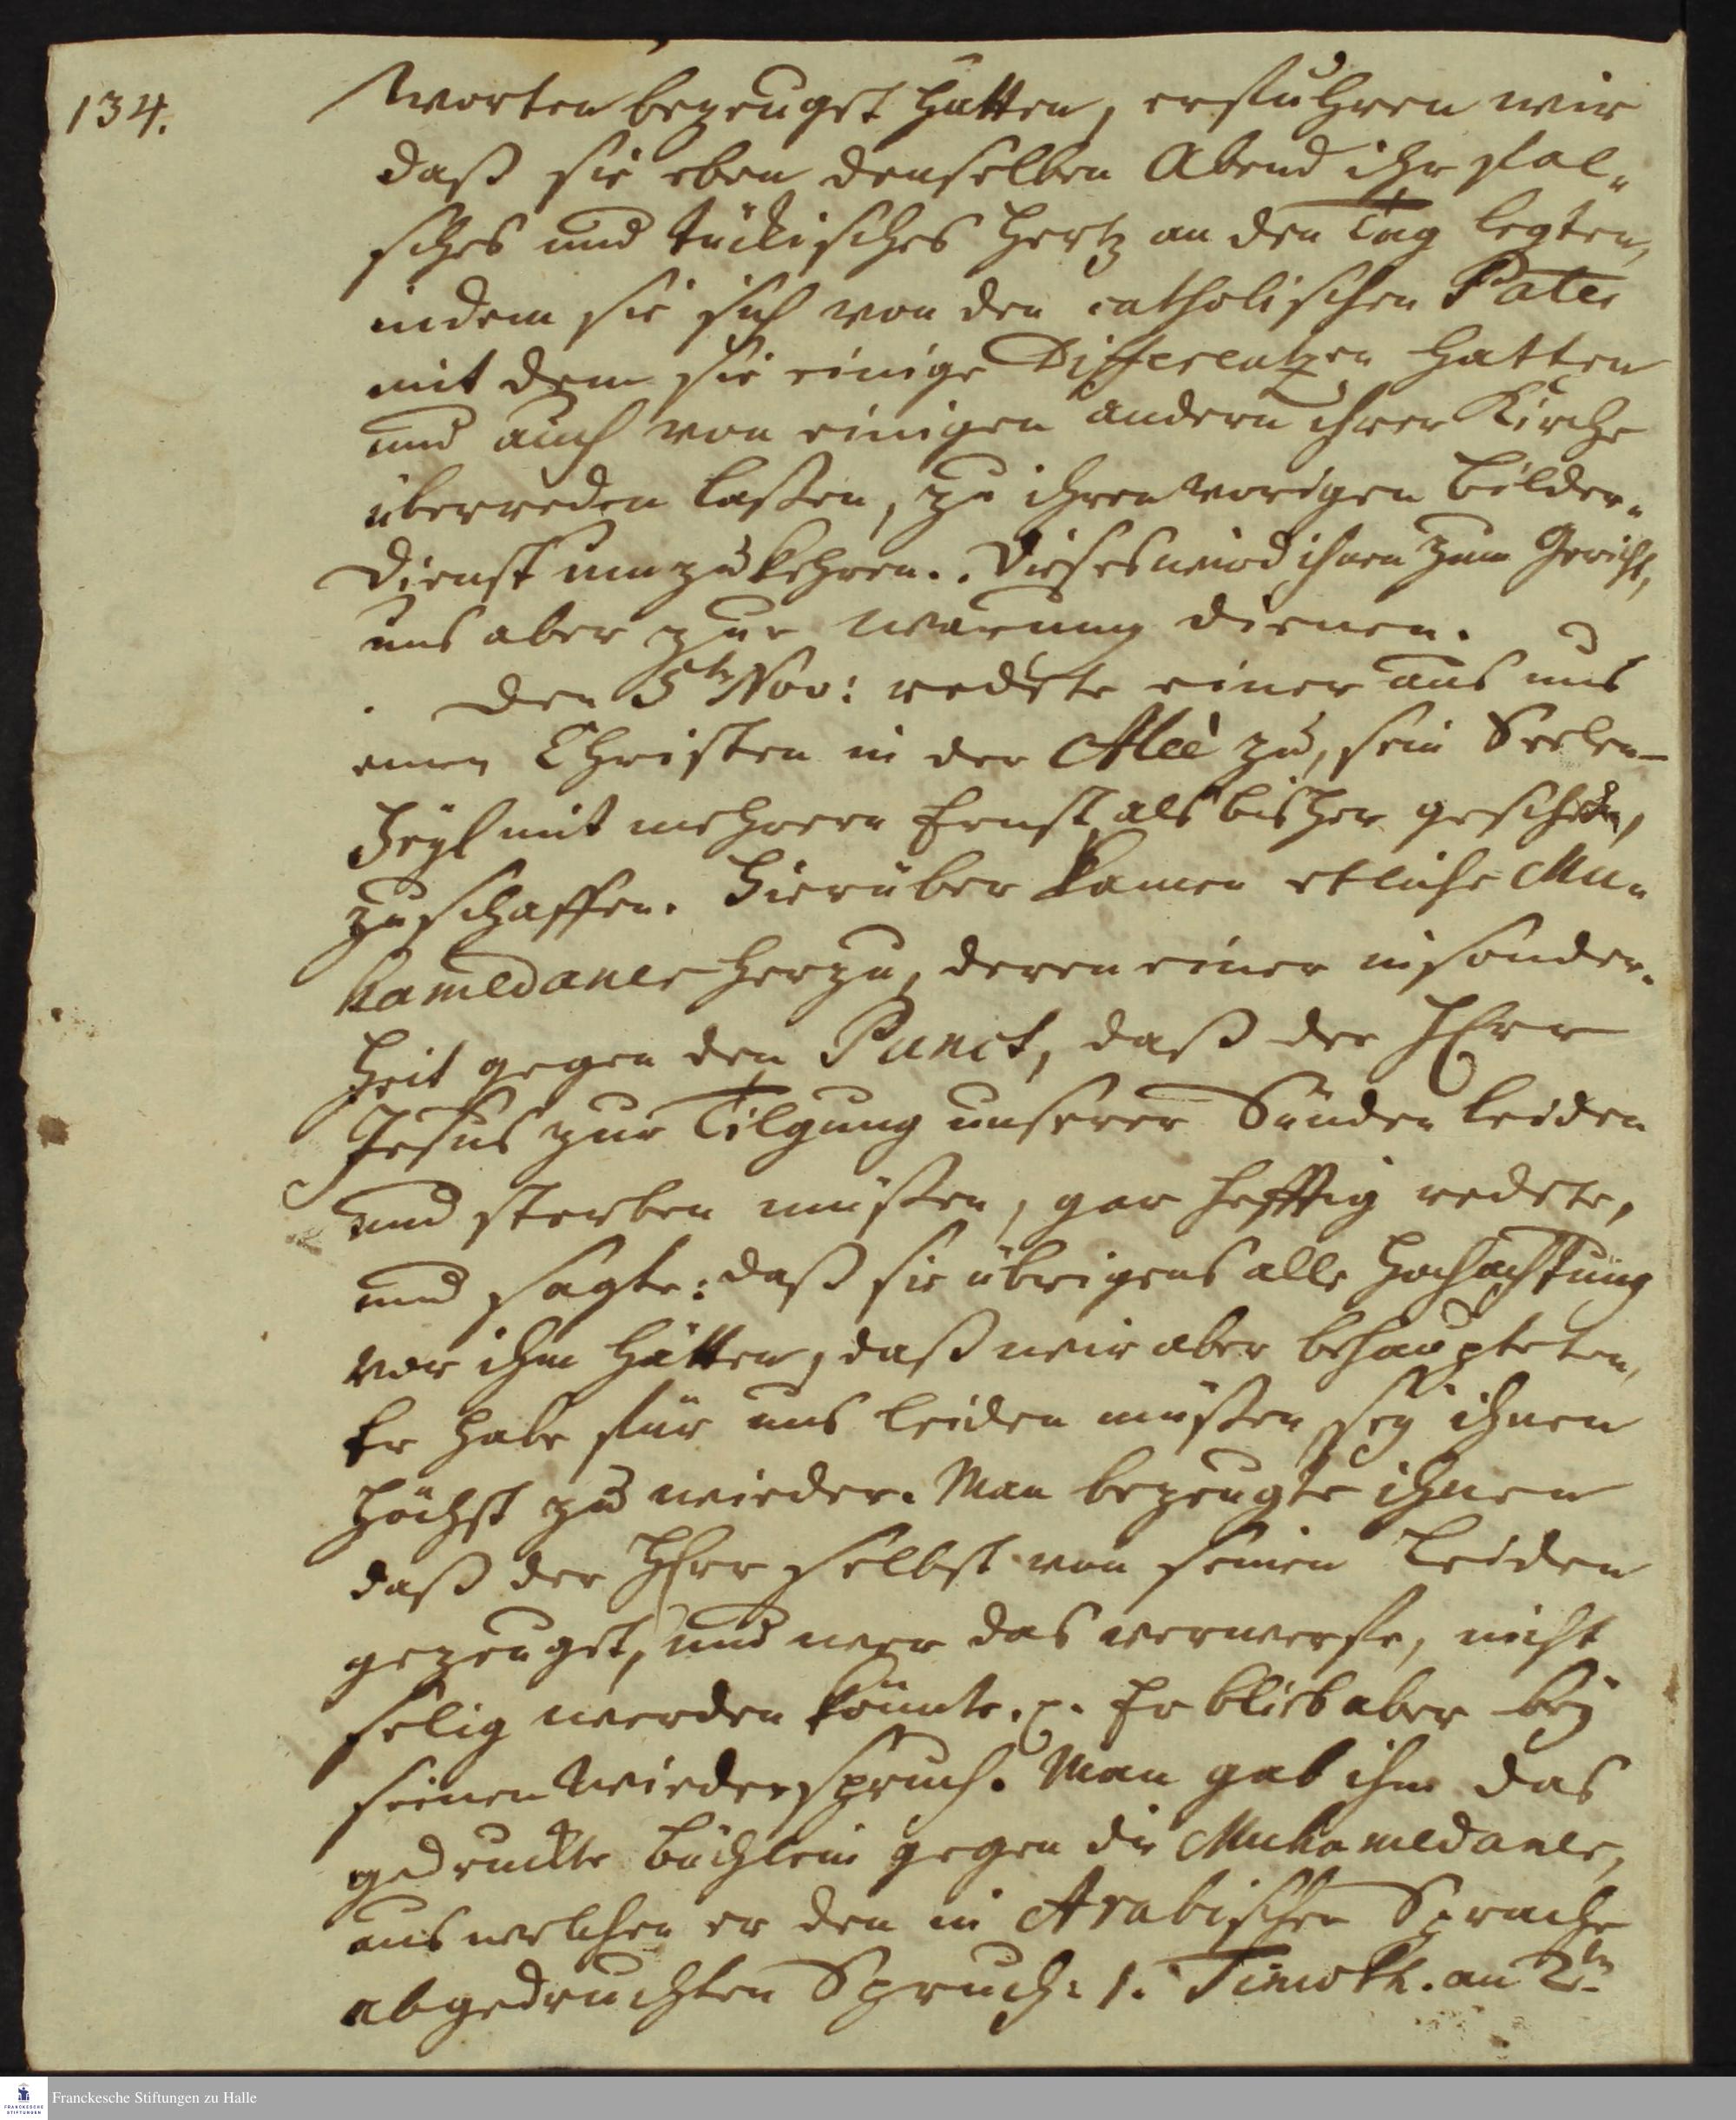 134.
Worten bezeuget hatten, erfuhren wir
daß sie eben denselben Abend ihr fal-
sches und tückisches Hertz an den Tag legten,
indem sie sich von den catholischen Pater
mit dem sie einige Differentzen hatten
und auch von einigen andern ihrer Kirche
überreden laßen, zu ihren vorigen Bilder-
Dienst umzukehren. Dieses wird ihnen zum Gericht,
uns aber zur Warnung dienen.
Den 5tn Nov: redete einer aus uns
einen Christen in der Alleè zu, sein Seelen-
Heyl mit mehrern Ernst als bisher geschehen,
zuschaffen. Hierüber kamen etliche Mu-
hamedaner herzu, deren einer insonder-
heit gegen den Punct, daß der HErr
Jesus zur Tilgung unserer Sünden leiden
und sterben müßen, gar hefftig redete,
und sagte: daß sie übrigens alle Hochachtung
vor ihm hätten, daß wir aber behaupteten,
Er habe für uns leiden müßen sey ihnen
höchst zu wieder. Man bezeugte ihnen
daß der HErr selbst von seinen Leiden
gezeuget, und wer das verwerfe, nicht
selig werden könnte. p. Er blieb aber bey
seinen Wiederspruch. Man gab ihm das
gedruckte Büchlein gegen die Muhamedaner,
aus welchen er den in Arabischer Sprache
abgedruckten Spruch: 1. Timoth. am 2tn
Franckesche Stiftungen zu Halle
FRANCKESCHE
STIFTUNGEN